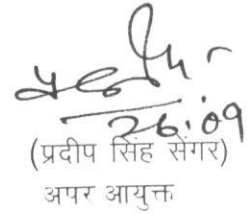 26.09
(प्रदीप सिंह सेंगर)
अपर आयुक्त